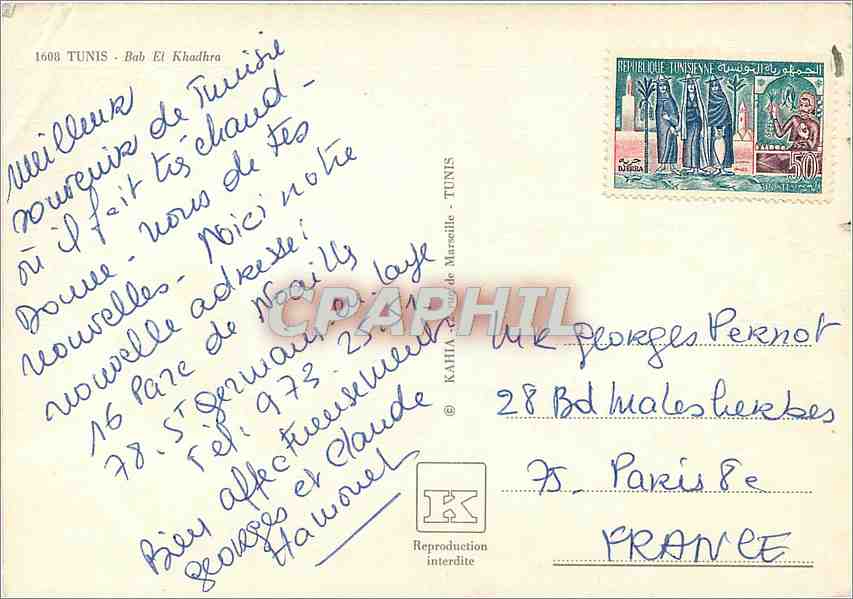 1608 TUNIS - Bab El Khadhra
Meilleur
souvenir de Tunisie
où il fait très chaud -
Donne - nous de tes
nouvelles - Voici notre
nouvelle adresse :
16 Parc de Noailles
78. St germain en laye
Tél : 973. 25
Bien affectueusement
georges et Claude
Hamonet
© KAHIA - rue de Marseille - TUNIS
K
Reproduction
interdite
REPUBLIQUE TUNISIENNE الجمهورية التونسية
جربة
DJERBA
50
Mr georges Pernot
28 Bd Malesherbes
75. Paris 8e
FRANCE
CPAPHIL